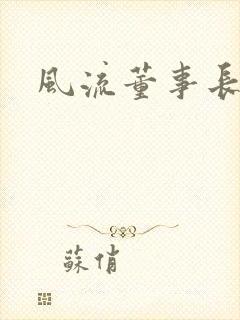 風流董事長
蘇俏